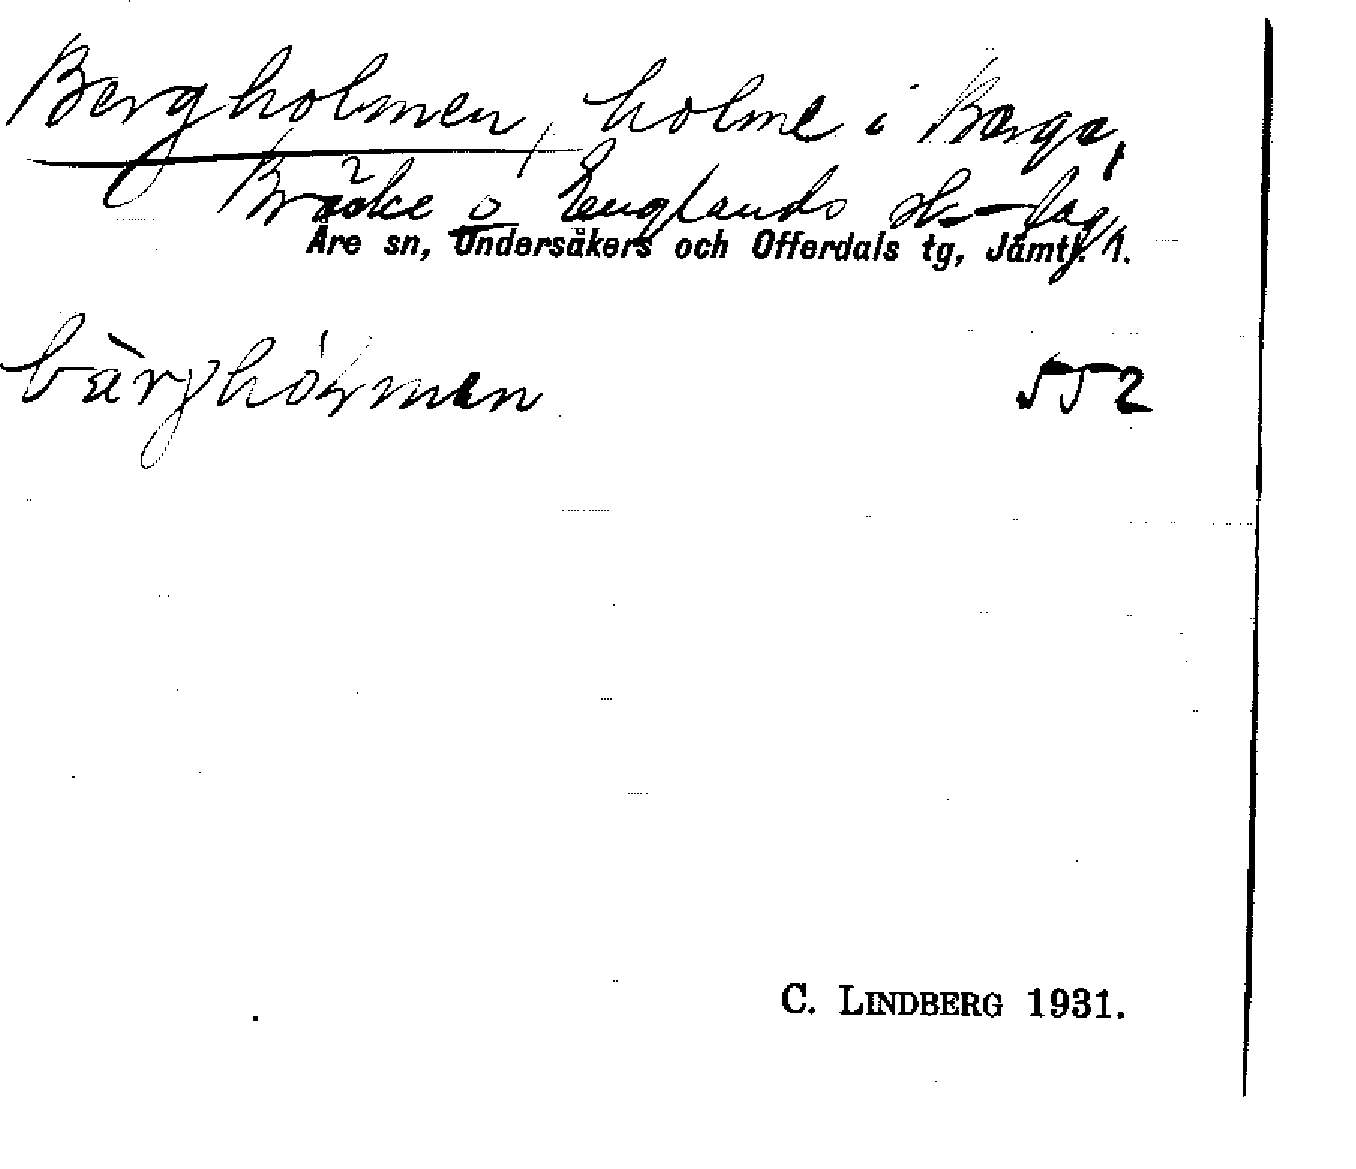 Bergholmen, holme i Berge,
Bräcke o Englands sk-lag,
Åre sn, Undersåkers och Offerdals tg, Jämtl. l.
bàrghólmen 552
C. LINDBERG 1931.